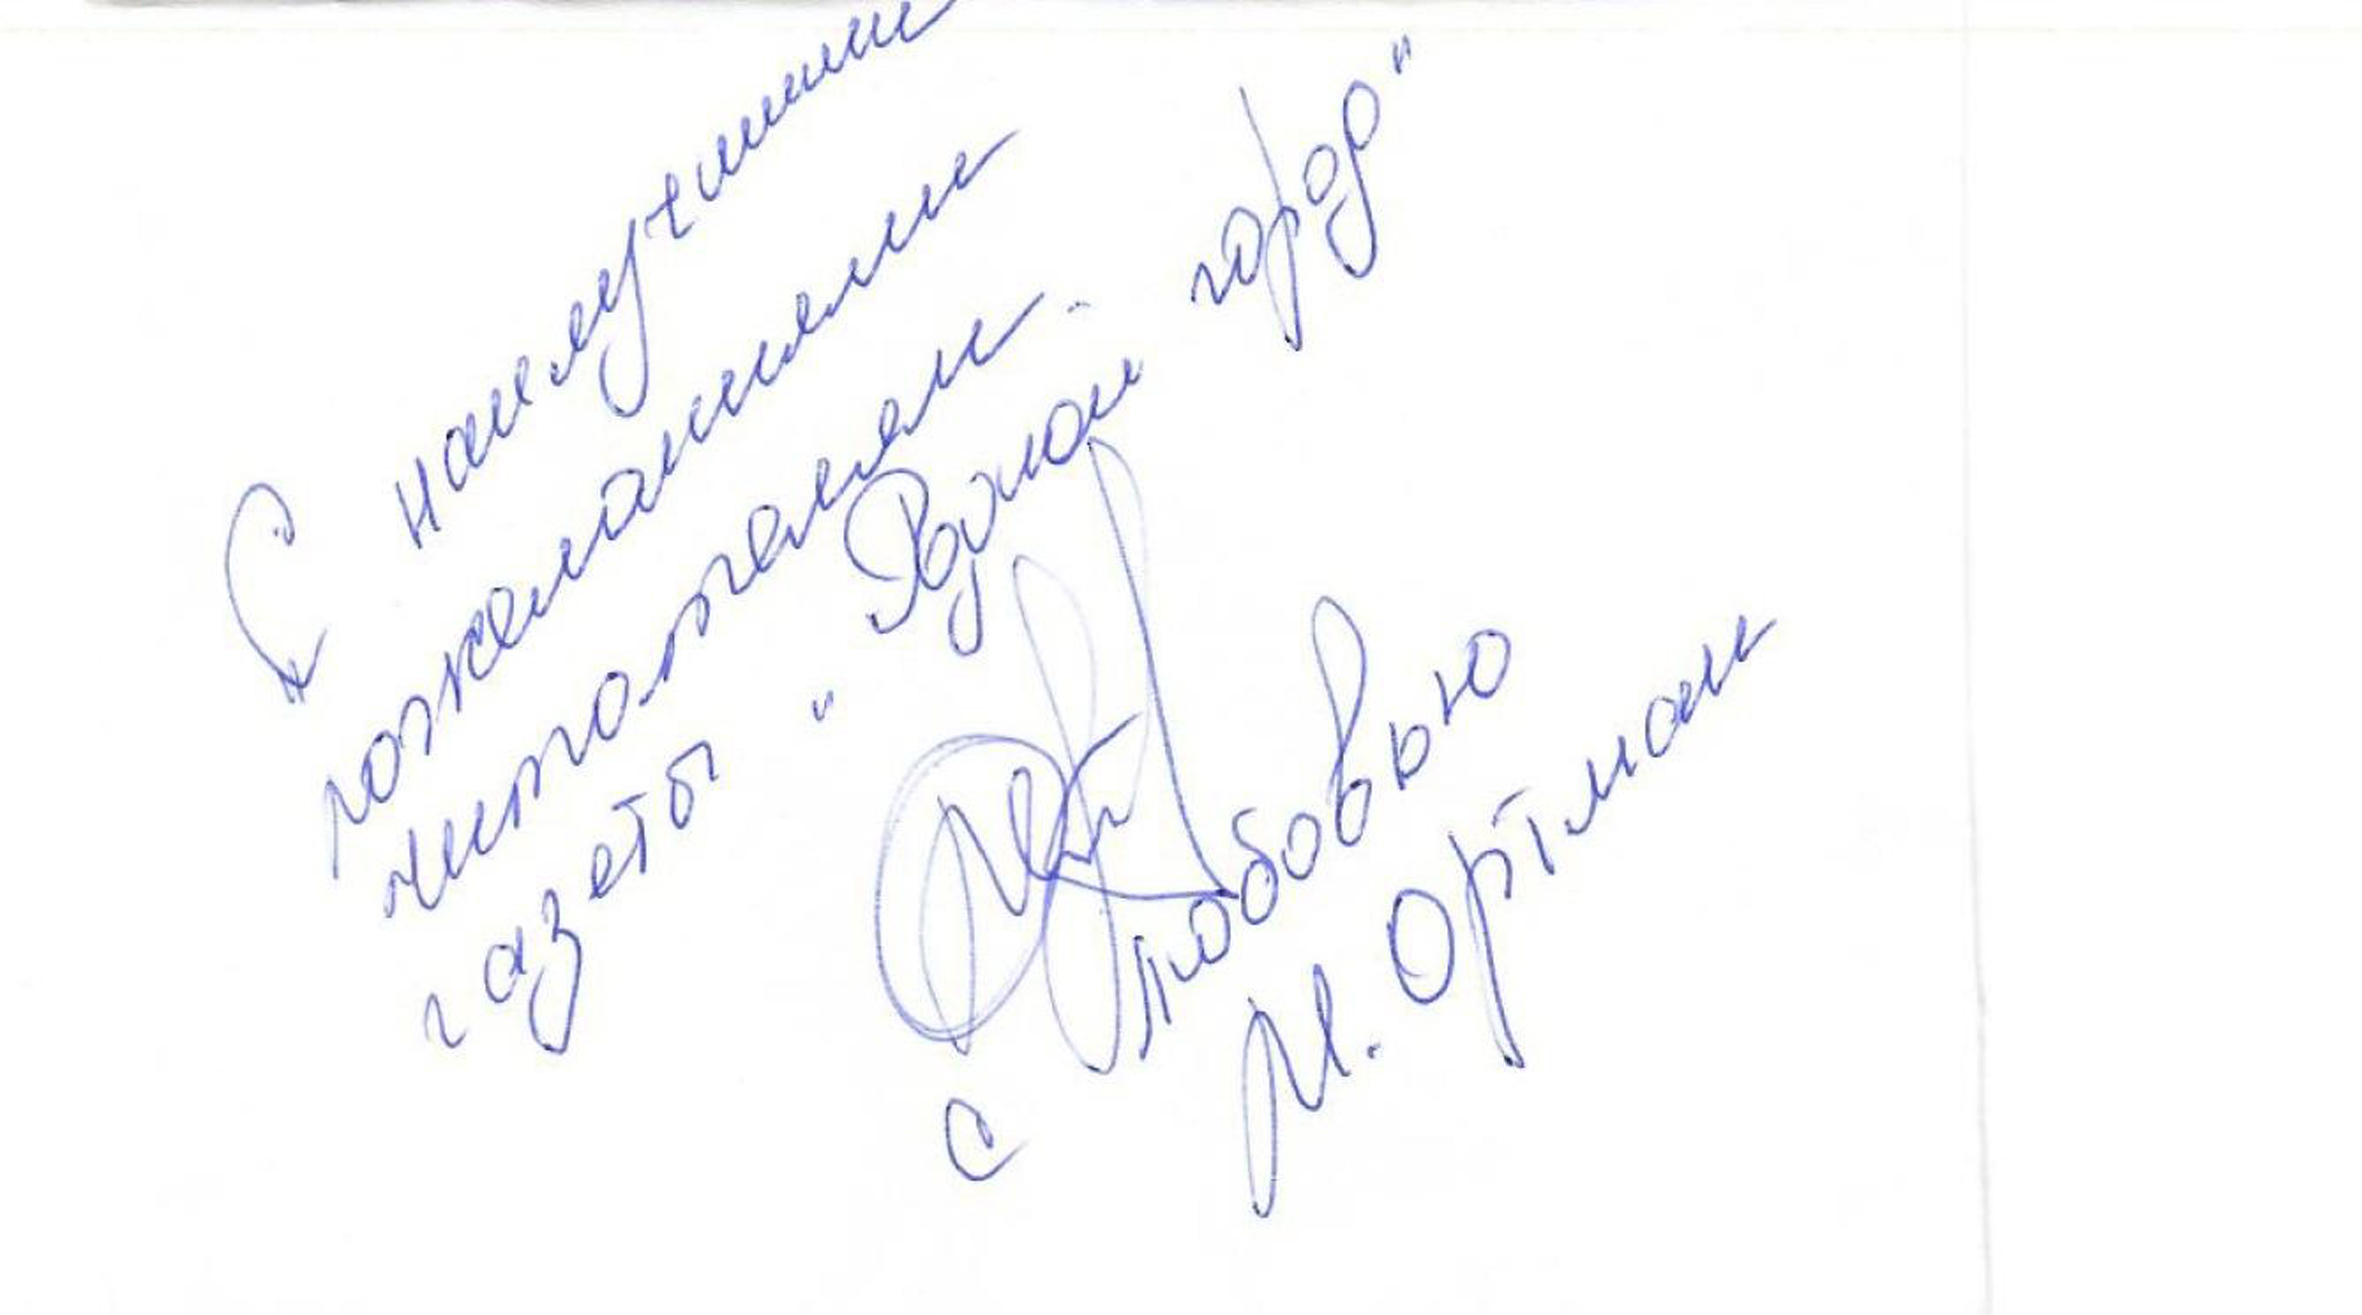 С наилучшими
пожеланиями
читателям
газеты "Родной город"
С любовью
М. Ортман